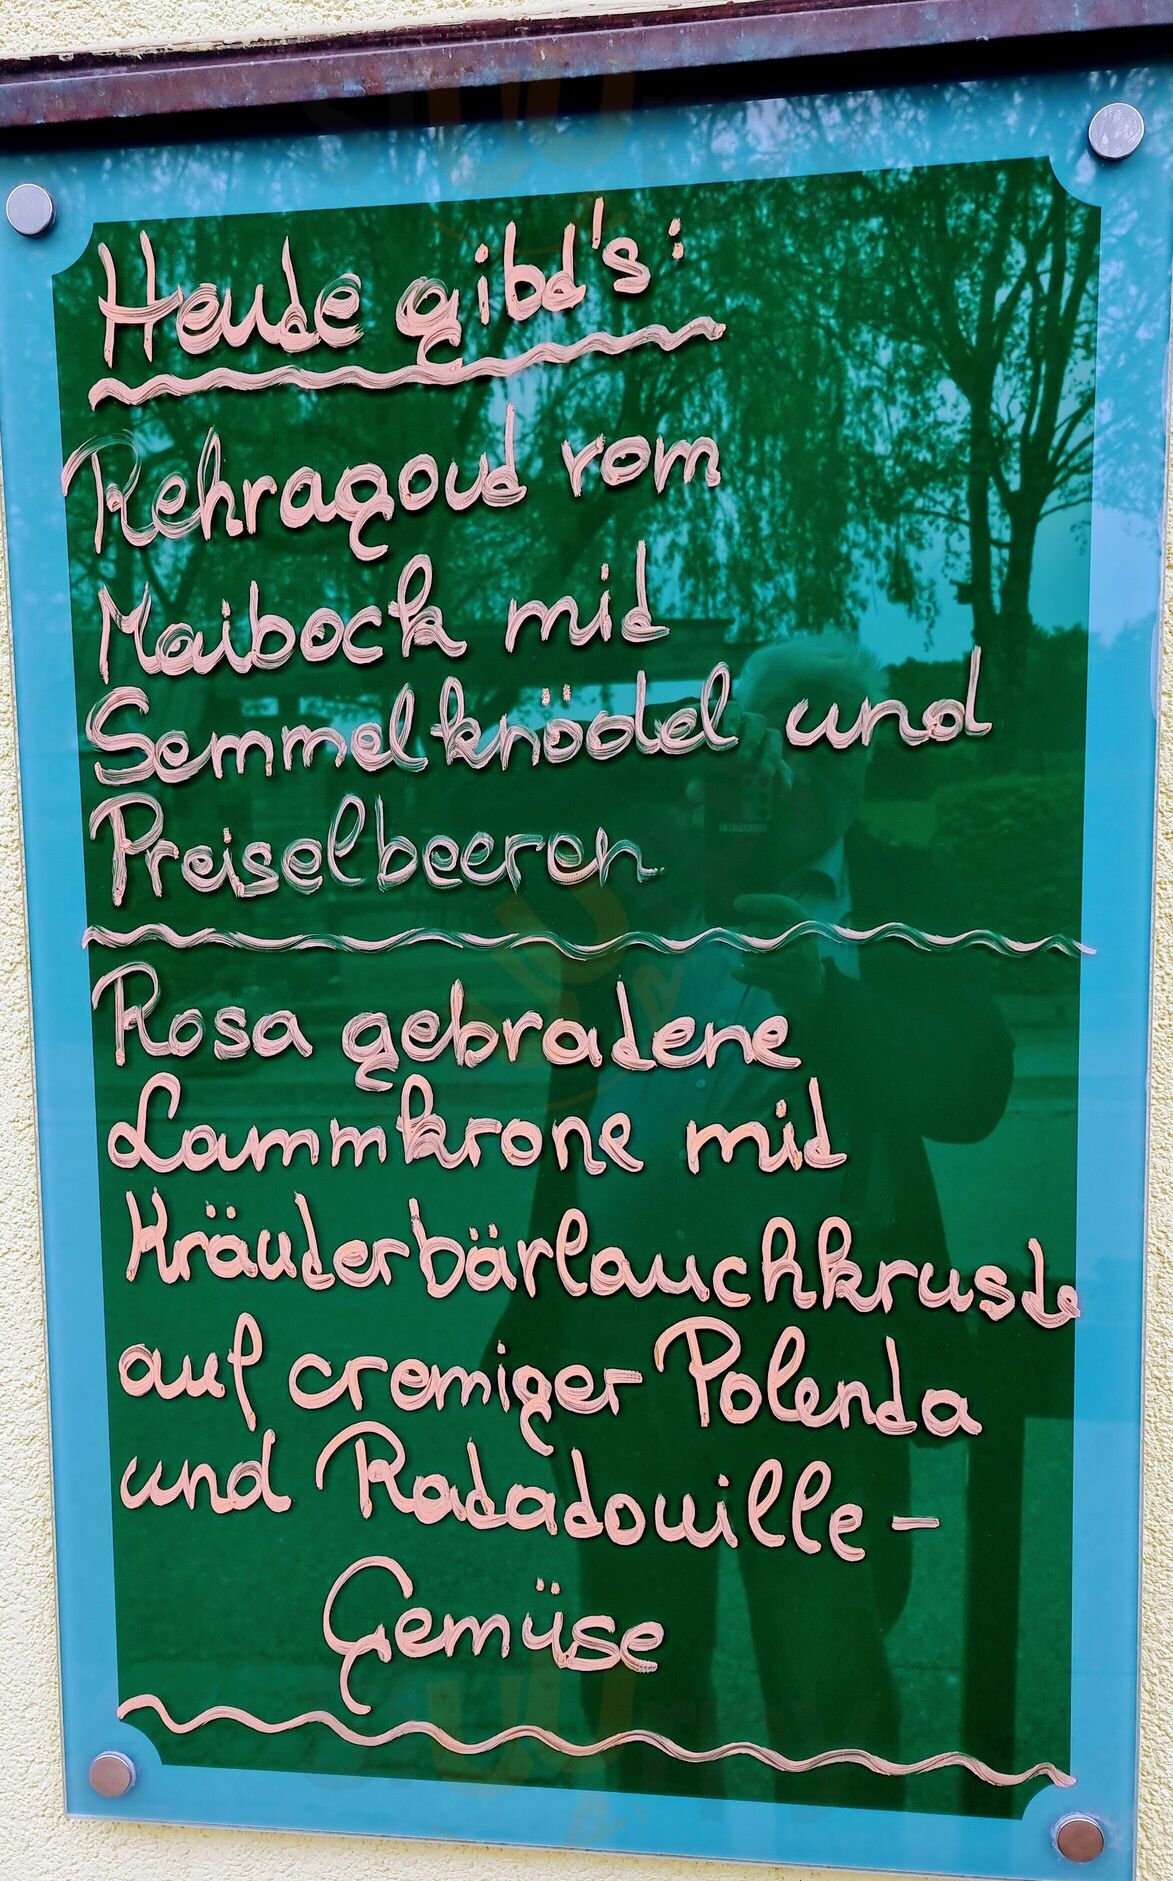 Heute gibt's:
Rehragout vom
Maibock mit
Semmelknödel und
Preiselbeeren
Rosa gebratene
Lammkrone mit
Kräuterbärlauchkruste
auf cremiger Polenta
und Ratatouille-
Gemüse